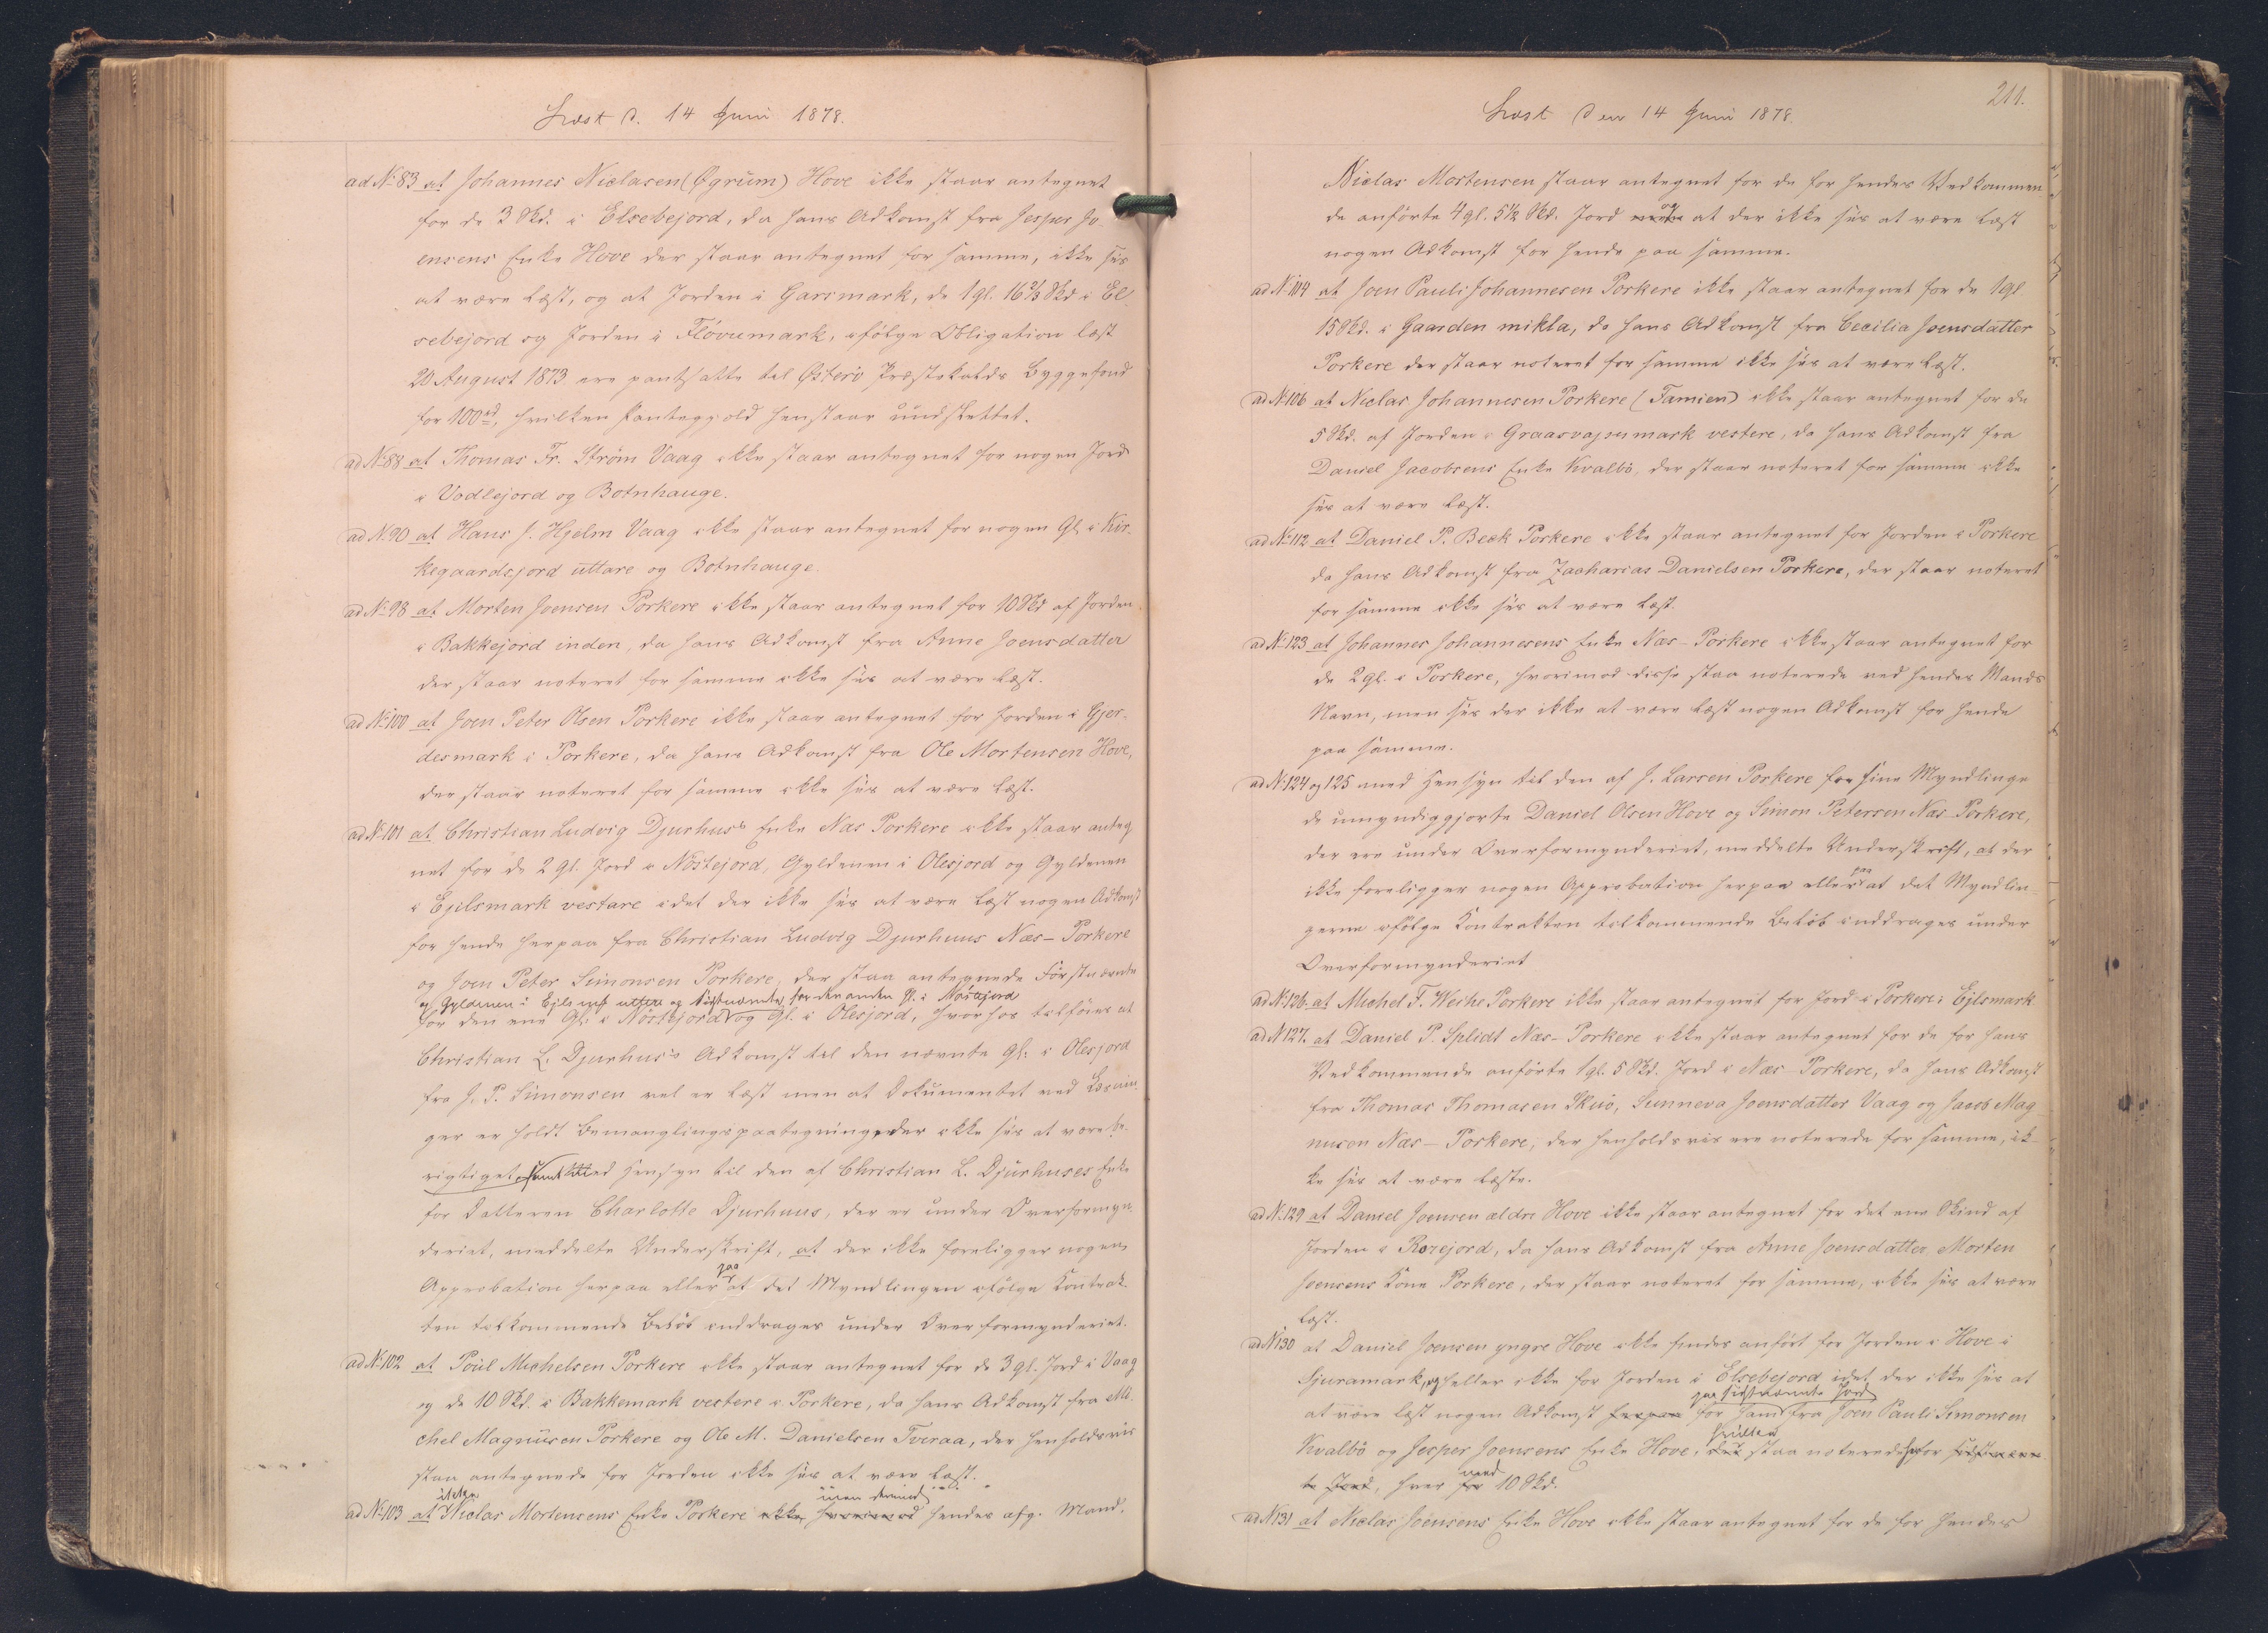 Læst d. 14 Juni 1878.
ad No 83 at Johannes Niclasen (Øgrum) Hove ikke staar antegnet
for de 3 Skd. i Elsebejord, da hans Adkomst fra Jesper Jo-
ensens Enke Hove der staar antegnet for samme, ikke sees
at være læst, og at Jorden i Garsmark, de 1 gl. 16 2/3 Skd i El-
sebejord og Jorden i Flövumark, ifølge Obligation læst
20 August 1873 ere pantsatte til Østerö Præstekalds Byggefond
for 100 rd, hvilken Pantegjæld henstaar uudslettet.
ad No 88 at Thomas Fr. Strøm Vaag ikke staar antegnet for nogen Jord
i Vodlejord og Botnhauge.
ad N. 90 at Hans J. Hjelm Vaag ikke staar antegnet for nogen Gl. i Kir-
kegaardsjord uttare og Botnhauge.
ad No 98 at Morten Joensen Porkere ikke staar antegnet for 10 Skd af Jorden
i Bakkejord inden, da hans Adkomst fra Anne Joensdatter
der staar noteret for samme ikke sees at være læst.
ad No 100 at Joen Peter Olsen Porkere ikke staar antegnet for Jorden i Gjer-
desmark i Porkere, da hans Adkomst fra Ole Mortensen Hove,
der staar noteret for samme ikke sees at være læst.
ad No 101 at Christian Ludvig Djurhus's Enke Næs Porkere ikke staar anteg
net for de 2 gl. Jord i Nöstejord, Gyldenen i Olesjord og Gyldenen
i Ejelsmark vestare idet der ikke sees at være læst nogen Adkomst
for hende herpaa fra Christian Ludvig Djurhuus Næs-Porkere
og Joen Peter Simonsen Porkere, der staa antegnede Förstnævnte
og Gyldenen i Ejelsmk uttere og Sidstnævnte for den anden Gl. i Nöstejord
for den ene Gl. i Nöstejord og Gl. i Olesjord, hvorhos tilföies at
Christian L. Djurhus's Adkomst til den nævnte Gl. i Olesjord
fra J. P. Simonsen vel er læst men at Dokumentet ved Læsnin-
gen er holdt Bemanglingspaategning, der ikke sees at være be-
rigtiget, samt Med Hensyn til den af Christian L. Djurhuses Enke
for Datteren Charlotte Djurhuus, der er under Overformyn-
deriet, meddelte Underskrift, at der ikke foreligger nogen
paa
Approbation herpaa eller at det Myndlingen ifölge Kontrak-
ten tilkommende Belöb inddrages under Overformynderiet.
ad No 102 at Poul Michelsen Porkere ikke staar antegnet for de 3 gl. Jord i Vaag
og de 10 Skd. i Bakkemark vestere i Porkere, da hans Adkomst fra Mi-
chel Magnusen Porkere og Ole M. Danielsen Tveraa, der henholdsvis
staa antegnede for Jorden ikke sees at være læst.
ikke men derimod
ad No 103 at Niclas Mortensens Enke Porkere ikke hvorimod hendes afg. Mand.
211.
Læst den 14 Juni 1878.
Niclas Mortensen staar antegnet for de for hendes Vedkommen
og
de anførte 4 gl. 5 1/2 Skd. Jord at der ikke sees at være læst
nogen Adkomst for hende paa samme.
ad No 104 at Joen Pauli Johannesen Porkere ikke staar antegnet for de 1 gl.
15 Skd. i Gaarden mikla, da hans Adkomst fra Cecilia Joensdatter
Porkere der staar noteret for samme ikke sees at være læst.
ad No 106 at Niclas Johannesen Porkere (Famien) ikke staar antegnet for de
5 Skd. af Jorden i Graasvajsumark vestere, da hans Adkomst fra
Daniel Jacobsens Enke Kvalbö, der staar noteret for samme ikke
sees at være læst.
ad No 112 at Daniel P. Beck Porkere ikke staar antegnet for Jorden i Porkere
da hans Adkomst fra Zacharias Danielsen Porkere, der staar noteret
for samme ikke sees at være læst.
ad No 123 at Johannes Johannesens Enke Næs-Porkere ikke staar antegnet for
de 2 gl. i Porkere, hvorimod disse staa noterede ved hendes Mands
Navn, men sees der ikke at være læst nogen Adkomst for hende
paa samme.
ad No 124 og 125 med Hensyn til den af J. Larsen Porkere for sine Myndlinge
de umyndiggjorte Daniel Olsen Hove og Simon Petersen Næs-Porkere,
der ere under Overformynderiet, meddelte Underskrift, at der
paa
ikke foreligger nogen Approbation herpaa eller at det Myndlin-
gerne ifölge Kontrakten tilkommende Belöb inddrages under
Overformynderiet
ad No 126. at Michel F. Weihe Porkere ikke staar antegnet for Jord i Porkere i Ejlsmark
ad N. 127. at Daniel P. Splidt Næs-Porkere ikke staar antegnet for de for hans
Vedkommende anførte 1 gl. 5 Skd. Jord i Næs-Porkere, da hans Adkomst
fra Thomas Thomasen Skuö, Sunneva Joensdatter Vaag og Jacob Mag
nusen Næs-Porkere, der henholdsvis ere noterede for samme, ik-
ke sees at være læste.
ad N. 129 at Daniel Joensen ældre Hove ikke staar antegnet for det ene Skind af
Jorden i Rorejord, da hans Adkomst fra Anne Joensdatter Morten
Joensens Kone Porkere, der staar noteret for samme, ikke sees at være
læst.
ad No 130 at Daniel Joensen yngre Hove ikke findes anført for Jorden i Hove i
Sjuramark, og heller ikke for Jorden i Elsebejord idet der ikke sees at
paa sidstnævnte Jord
at være læst nogen Adkomst herpaa for ham fra Joen Pauli Simonsen
hvilken
Kvalbö og Jesper Joensens Enke Hove, der staa noterede for sidstnævn-
med
te Jord, hver for 10 Skd.
ad N. 131 at Niclas Joensens Enke Hove ikke staar antegnet for de for hendes